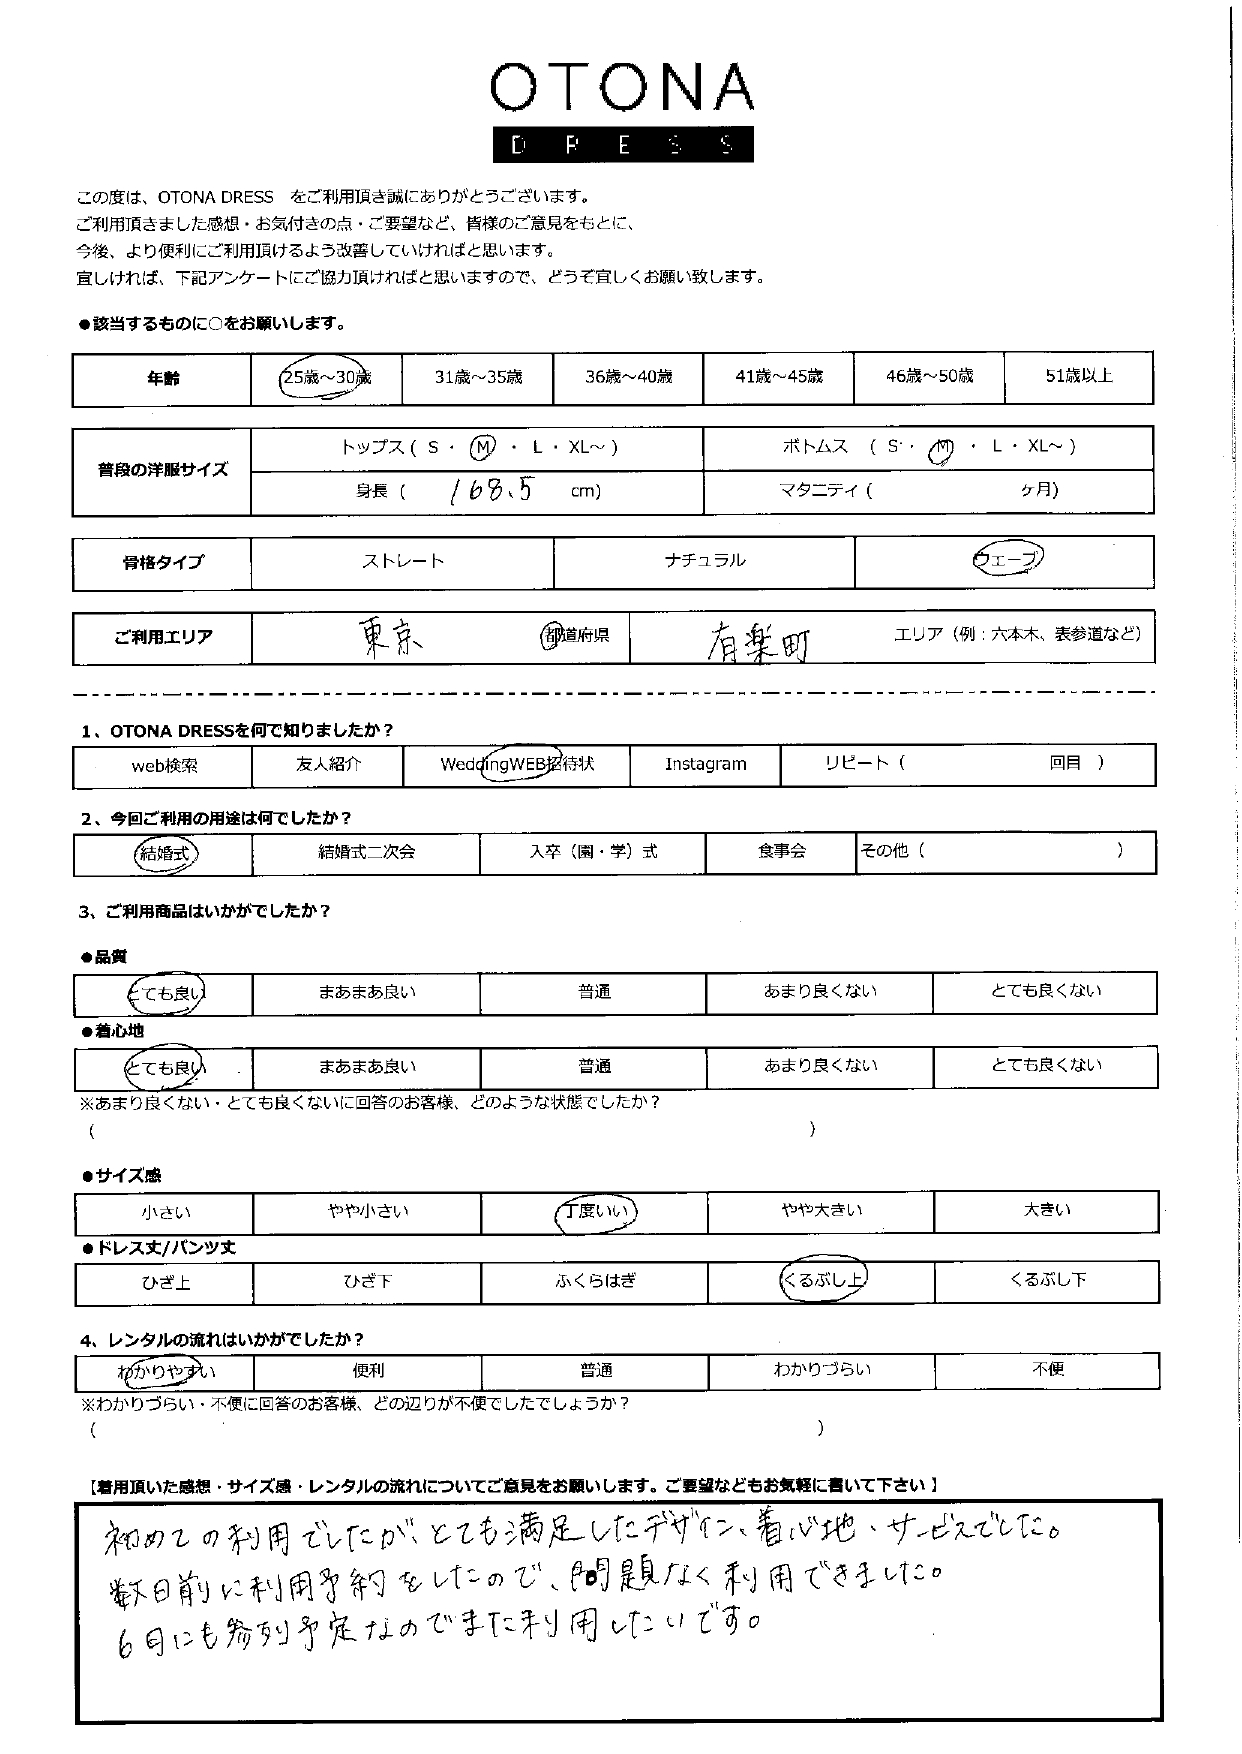 OTONA
DRESS
この度は、OTONA DRESS をご利用頂き誠にありがとうございます。
ご利用頂きました感想・お気付きの点・ご要望など、皆様のご意見をもとに、
今後、より便利にご利用頂けるよう改善していければと思います。
宜しければ、下記アンケートにご協力頂ければと思いますので、どうぞ宜しくお願い致します。
●該当するものに○をお願いします。
年齢 25歳～30歳 31歳～35歳 36歳～40歳 41歳～45歳 46歳～50歳 51歳以上
普段の洋服サイズ トップス ( S ・ M ・ L ・ XL～ ) ボトムス ( S ・ M ・ L ・ XL～ )
身長 ( 168.5 cm) マタニティ ( ヶ月)
骨格タイプ ストレート ナチュラル ウェーブ
ご利用エリア 東京 都道府県 有楽町 エリア（例：六本木、表参道など）
1、OTONA DRESSを何で知りましたか？
web検索 友人紹介 WeddingWEB招待状 Instagram リピート ( 回目 )
2、今回ご利用の用途は何でしたか？
結婚式 結婚式二次会 入卒（園・学）式 食事会 その他 ( )
3、ご利用商品はいかがでしたか？
●品質
とても良い まあまあ良い 普通 あまり良くない とても良くない
●着心地
とても良い まあまあ良い 普通 あまり良くない とても良くない
※あまり良くない・とても良くないに回答のお客様、どのような状態でしたか？
( )
●サイズ感
小さい やや小さい 丁度いい やや大きい 大きい
●ドレス丈/パンツ丈
ひざ上 ひざ下 ふくらはぎ くるぶし上 くるぶし下
4、レンタルの流れはいかがでしたか？
わかりやすい 便利 普通 わかりづらい 不便
※わかりづらい・不便に回答のお客様、どの辺りが不便でしたでしょうか？
( )
【着用頂いた感想・サイズ感・レンタルの流れについてご意見をお願いします。ご要望などもお気軽に書いて下さい】
初めての利用でしたが、とても満足したデザイン、着心地、サービスでした。
数日前に利用予約をしたので、問題なく利用できました。
6月にも参列予定なのでまた利用したいです。